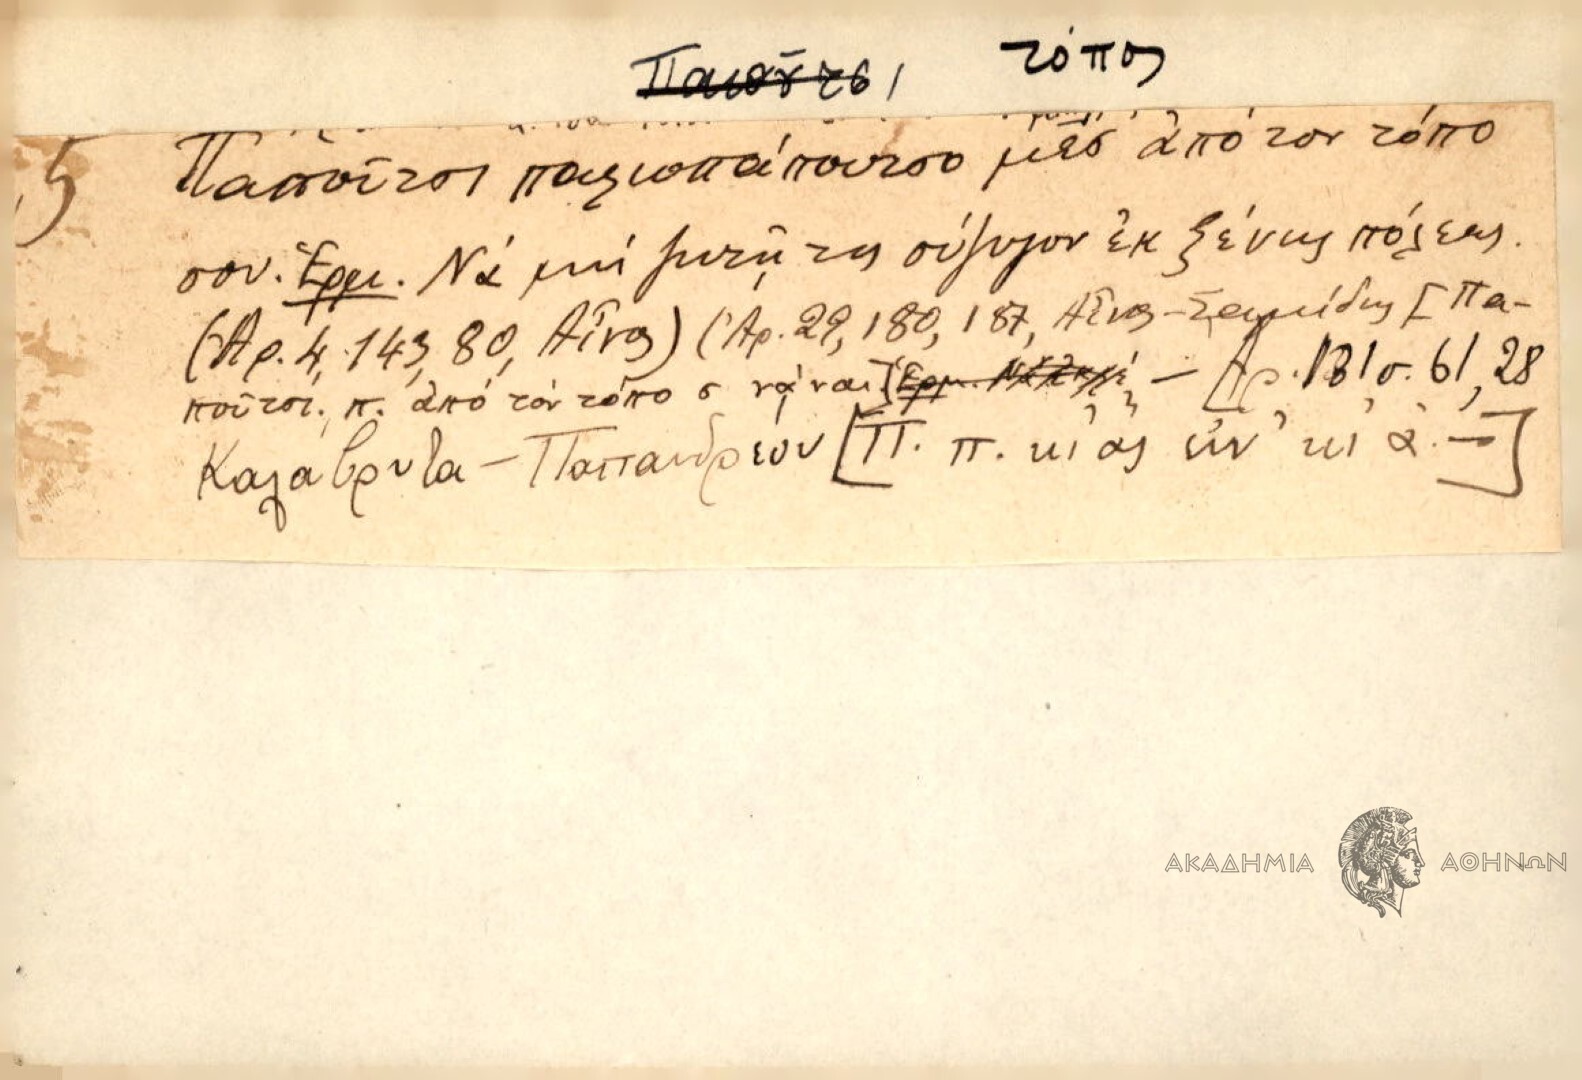 ~~Παπούτσι~~ τόπος
5 Παποῦτσι παλιοπάπουτσο μὲσ᾽ ἀπό τον τόπο
σου. Ἑρμ. Νά μή ζητῇ τις σύζυγον ἐκ ξένης πόλεως.
(Ἀρ. 4, 143, 80, Αἶνος) (Ἀρ. 29, 180, 187, Αἶνος - Σαμίδης [Πα-
ποῦτσι. π. ἀπό τόν τόπο σ νά ναι] ~~Ἑρμ.~~ — [Ἀρ. 131 σ. 61, 28
Καλάβρυτα - Παπανδρέου [Π. π. κι ἀς εἶν᾽ κι ἀ. —]
ΑΚΑΔΗΜΙΑ ΑΘΗΝΩΝ